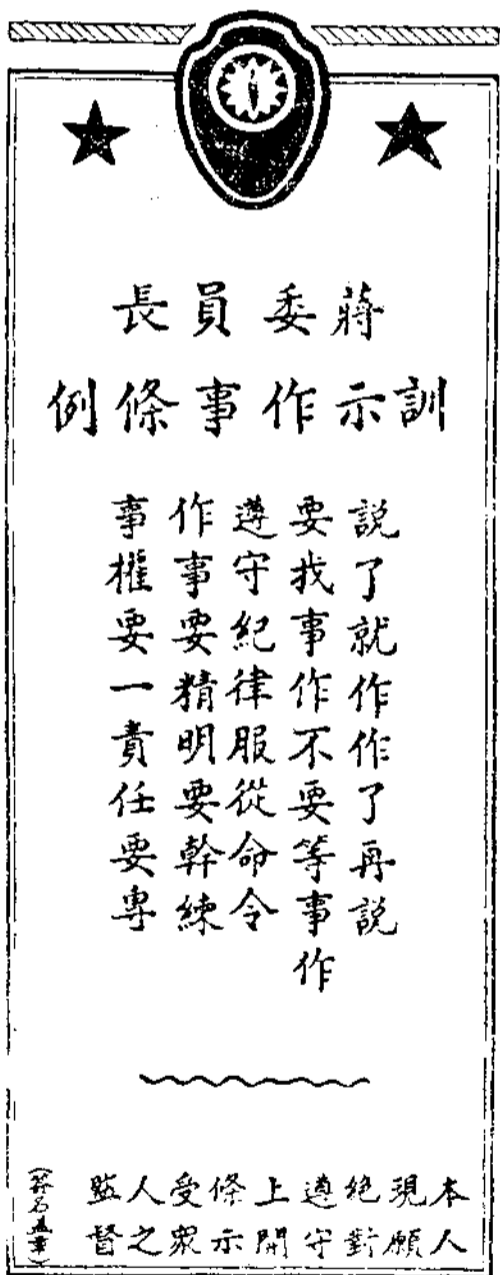 蔣委員長
訓示作事條例
說了就作作了再說
要找事作不要等事作
遵守紀律服從命令
作事要精明要幹練
事權要一責任要專
本人
現願
絕對
遵守
上開
條示
受眾
人之
監督
(簽名蓋章)